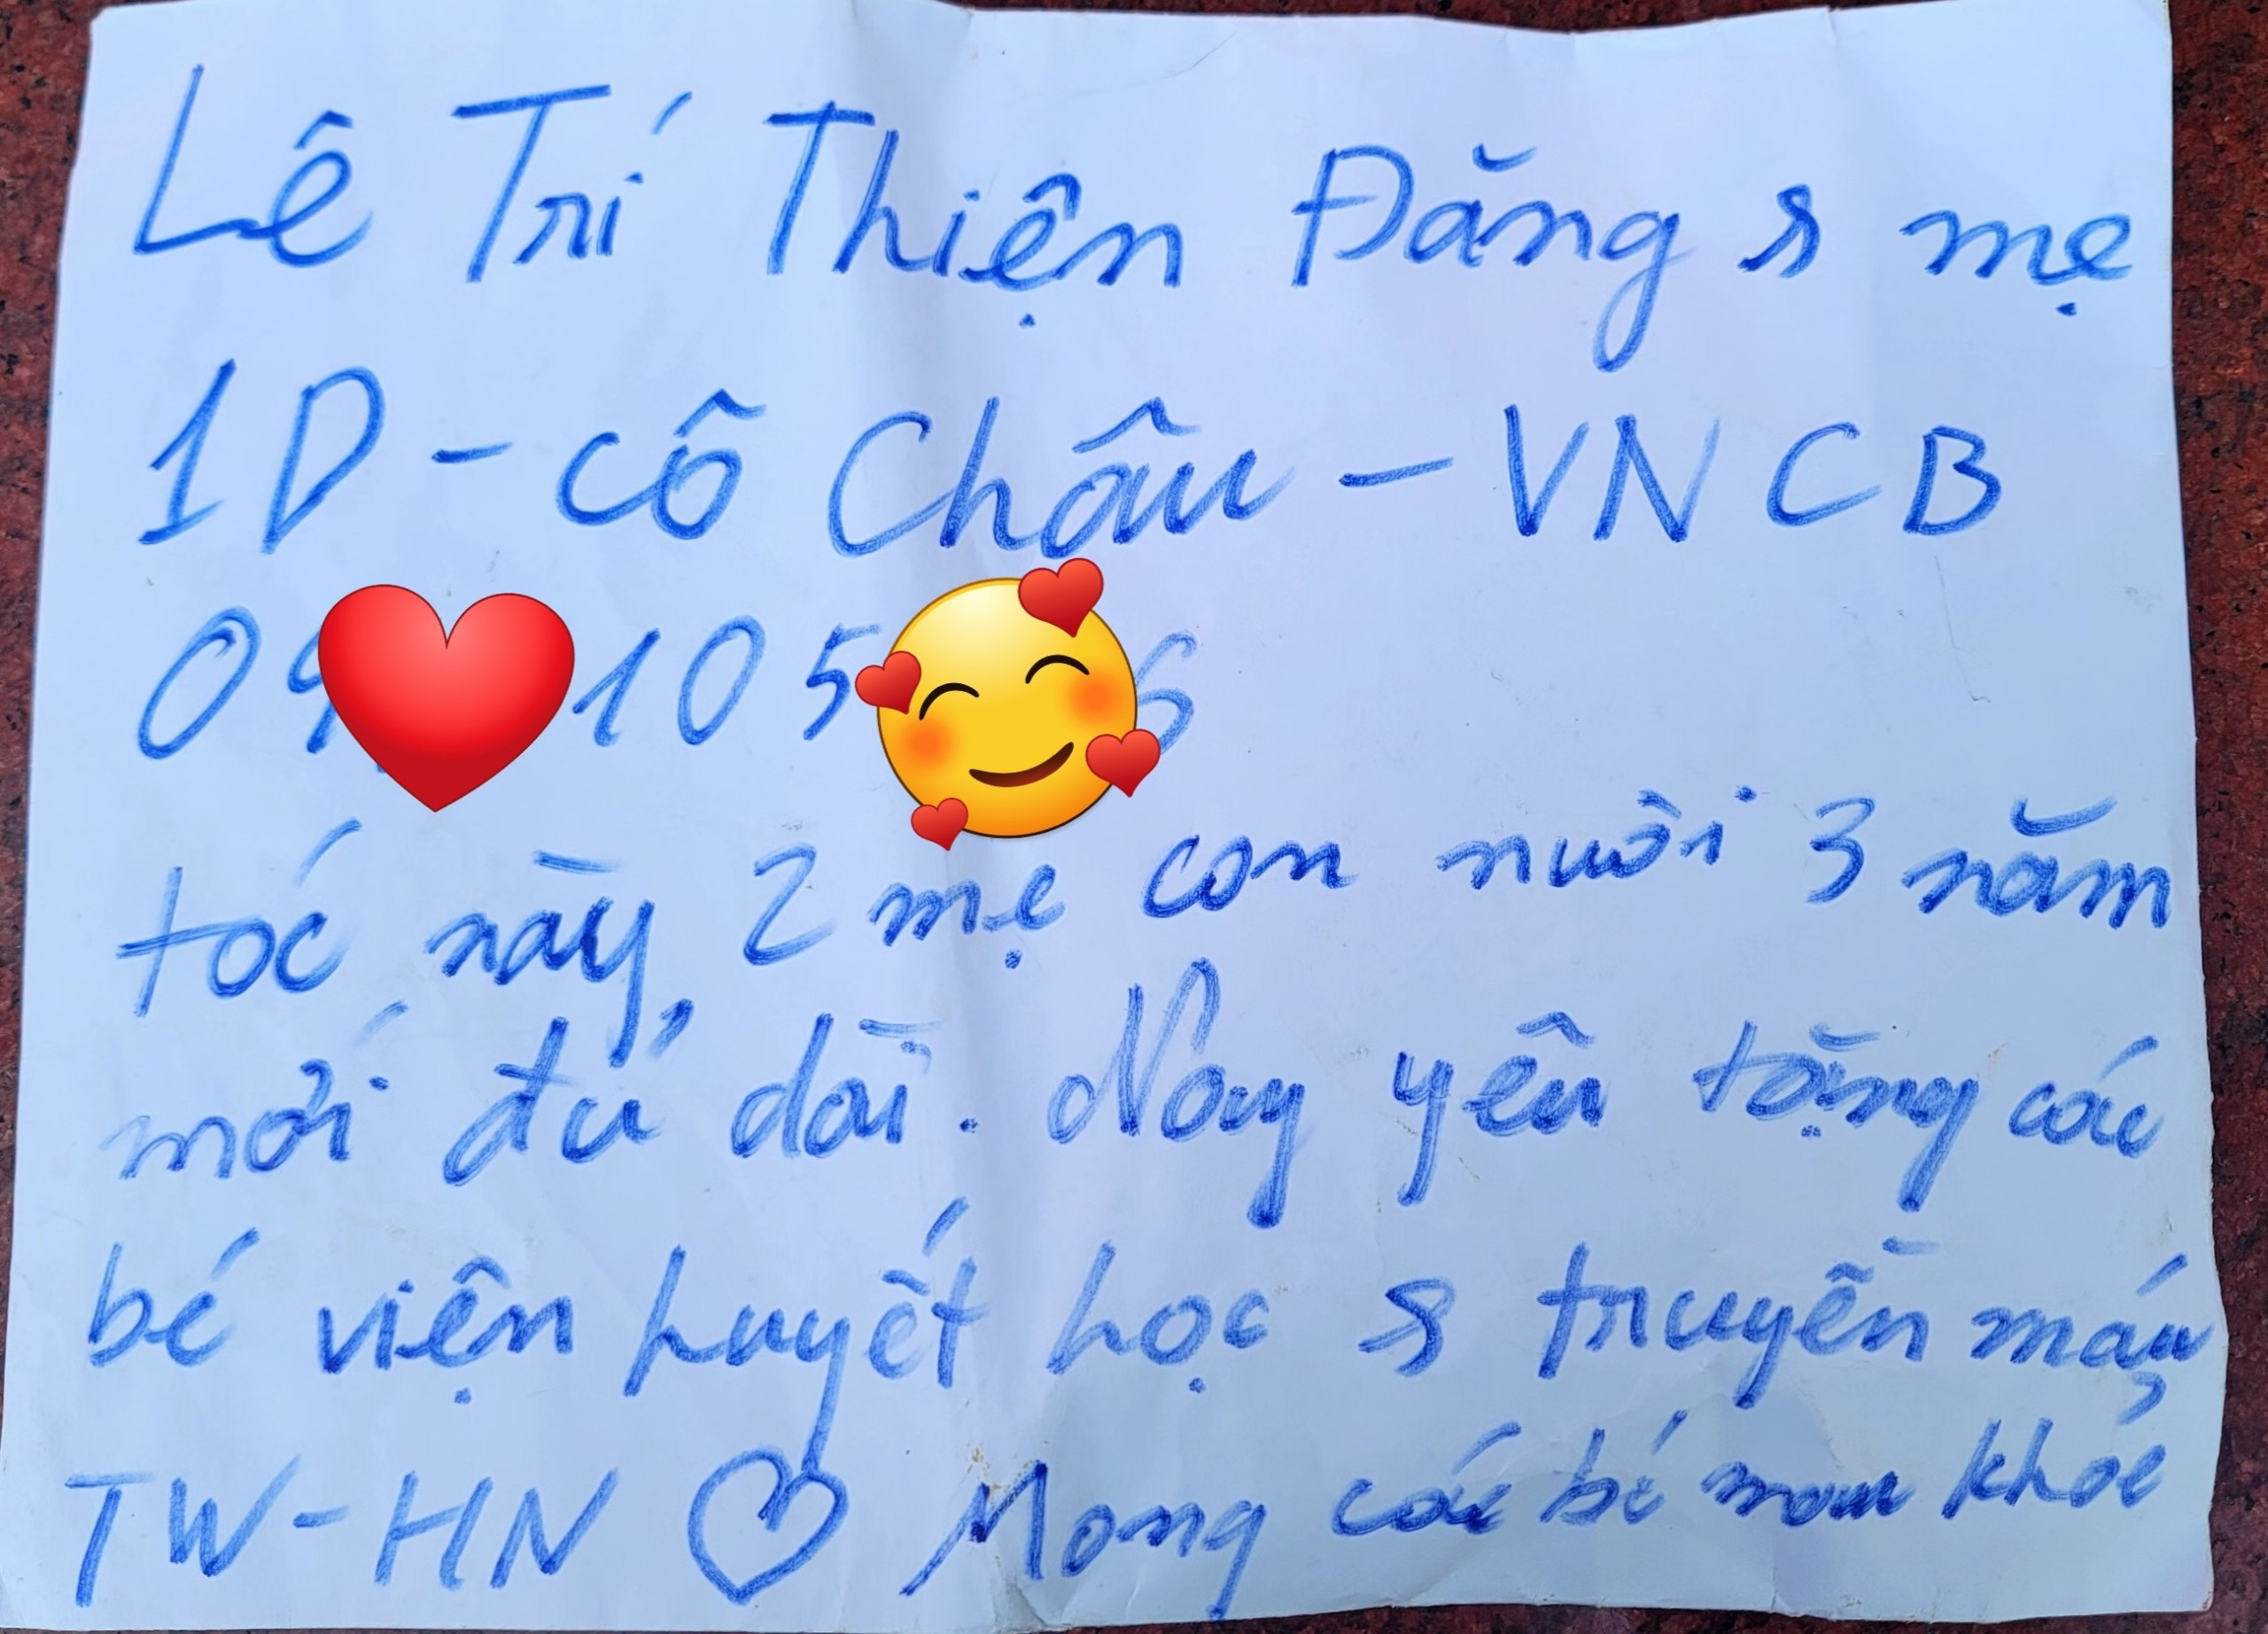 Lê Trí Thiện Đăng & mẹ
1D - cô Châu - VNCB
09 105 6
tóc này, 2 mẹ con nuôi 3 năm
mới đủ dài. Nay yêu tặng các
bé viện huyết học & truyền máu
TW - HN ♡ Mong các bé mau khỏe